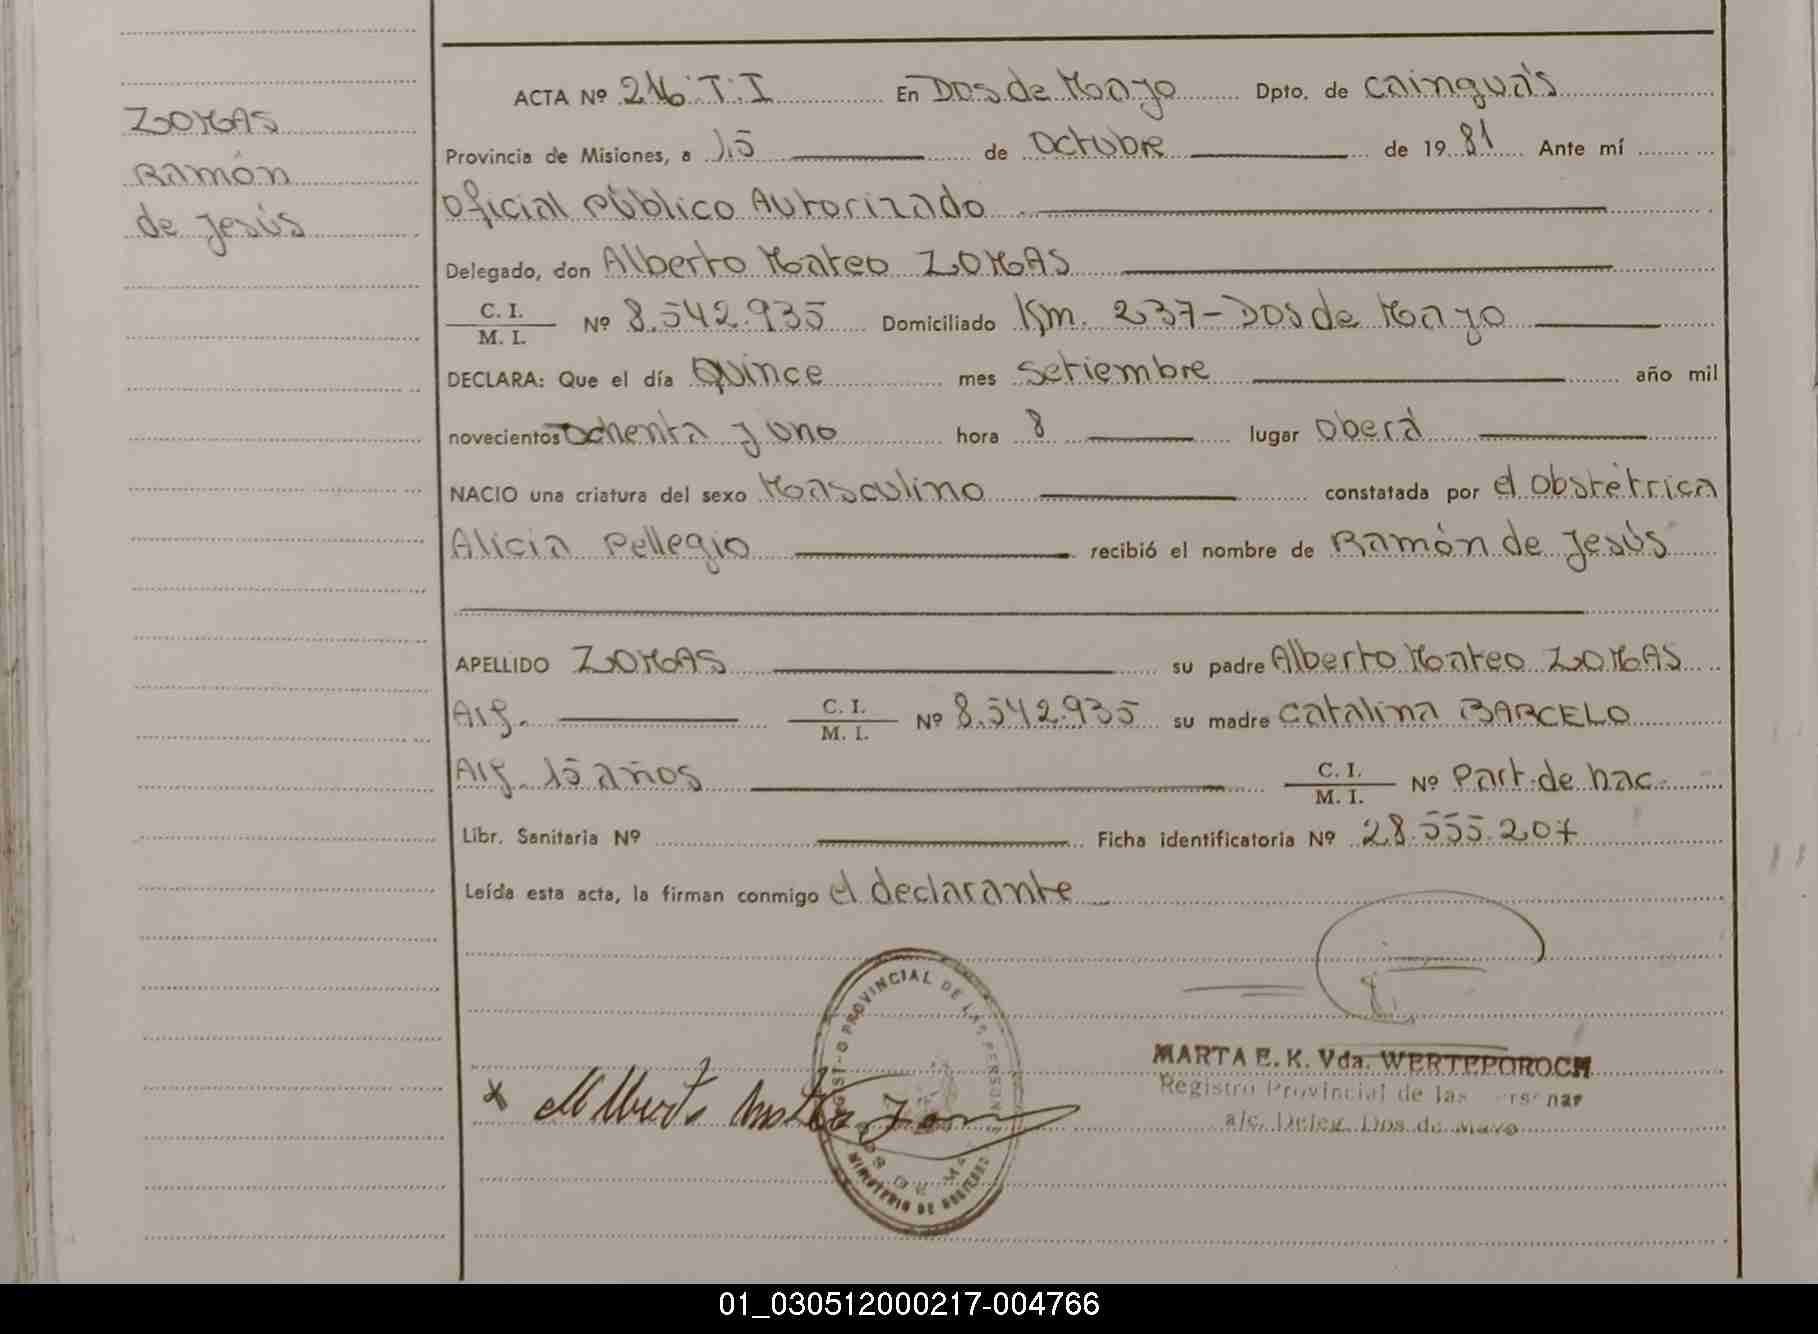 ZOMAS
Ramón
de Jesús
ACTA Nº 216 T. I En Dos de Mayo Dpto. de Cainguás
Provincia de Misiones, a 15 de Octubre de 1981 Ante mí
Oficial Público Autorizado
Delegado, don Alberto Mateo ZOMAS
C. I.
M. I. Nº 8.542.935 Domiciliado Km. 237-Dos de Mayo
DECLARA: Que el día Quince mes Setiembre año mil
novecientos Ochenta y uno hora 8 lugar Oberá
NACIO una criatura del sexo Masculino constatada por el Obstétrica
Alicia Pellegio recibió el nombre de Ramón de Jesús
APELLIDO ZOMAS su padre Alberto Mateo ZOMAS
Arg. C. I.
M. I. Nº 8.542.935 su madre Catalina BARCELO
Arg. 15 años C. I.
M. I. Nº Part. de nac.
Libr. Sanitaria Nº Ficha identificatoria Nº 28.555.207
Leída esta acta, la firman conmigo el declarante
PROVINCIAL DE LAS PERSONAS
MINISTERIO DE GOBIERNO
x Alberto
MARTA E. K. Vda. WERTEPOROCH
Registro Provincial de las
a/c. Deleg. Dos de Mayo
01_030512000217-004766